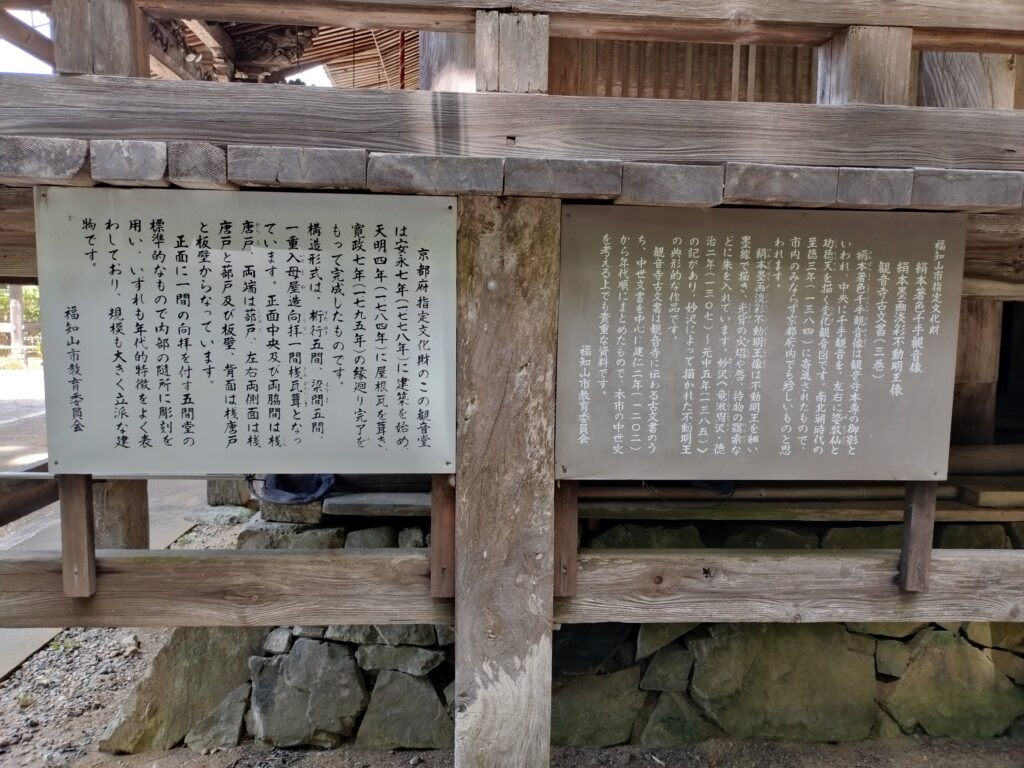 京都府指定文化財のこの観音堂
は安永七年(一七七八年)に建築を始め、
天明四年(一七八四年)に屋根瓦を葺き、
寛政七年(一七九五年)の縁廻り完了を
もって完成したものです。
構造形式は、桁行五間、梁間五間、
一重入母屋造向拝一間桟瓦葺となっ
ています。正面中央及び両脇間は桟
唐戸、両端は蔀戸、左右両側面は桟
唐戸と蔀戸及び板壁、背面は桟唐戸
と板壁からなっています。
正面に一間の向拝を付す五間堂の
標準的なもので内部の随所に彫刻を
用い、いずれも年代的特徴をよく表
わしており、規模も大きく立派な建
物です。
福知山市教育委員会
福知山市指定文化財
絹本着色千手観音像
絹本墨画淡彩不動明王像
観音寺古文書(三巻)
絹本着色千手観音像は観音寺本尊の御影と
いわれ、中央に千手観音を、左右に婆数仙と
功徳天を描く変化観音図です。南北朝時代の
至徳三年(一三八四)に寄進されたもので、
市内のみならず京都府内でも珍しいものと思
われます。
絹本墨画淡彩不動明王像は不動明王を細い
墨線で描き、光背の火焔や唇、持物の羂索な
どに朱を入れています。妙沢(竜湫周沢・徳
治二年(一三〇七)~元中五年(一三八五))
の記があり、妙沢によって描かれた不動明王
の典形的な作品です。
観音寺古文書は観音寺に伝わる古文書のう
ち、中世文書を中心に建仁二年(一二〇二)
から年代順にまとめたもので、本市の中世史
を考える上でも貴重な資料です。
福知山市教育委員会